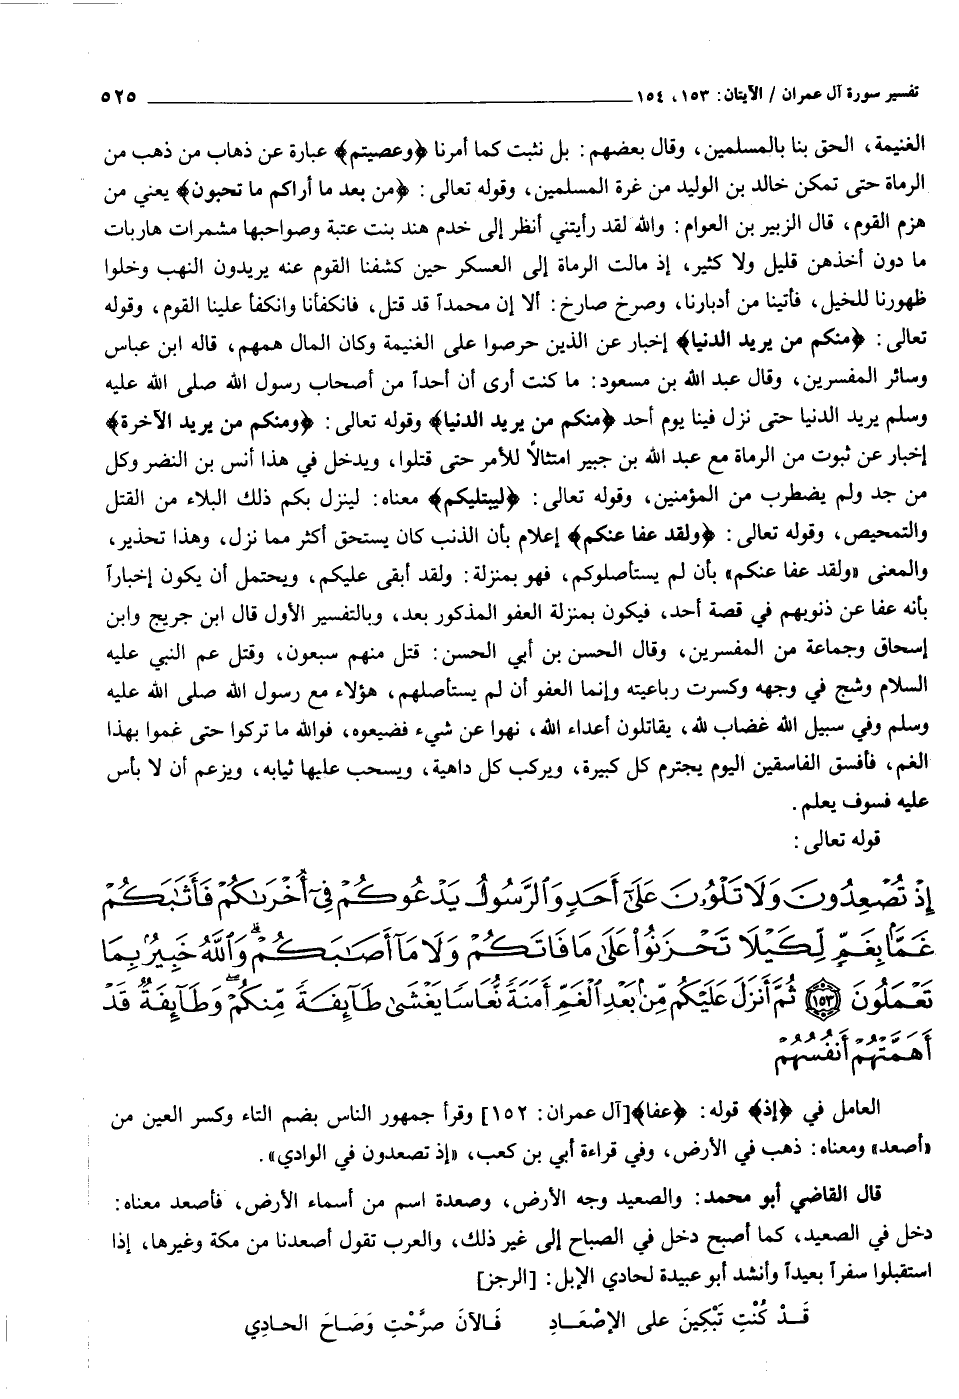 تفسير سورة آل عمران / الآيتان: ١٥٣، ١٥٤ ٥٢٥
الغنيمة، الحق بنا بالمسلمين، وقال بعضهم: بل نثبت كما أمرنا ﴿وعصيتم﴾ عبارة عن ذهاب من ذهب من
الرماة حتى تمكن خالد بن الوليد من غرة المسلمين، وقوله تعالى: ﴿من بعد ما أراكم ما تحبون﴾ يعني من
هزم القوم، قال الزبير بن العوام: والله لقد رأيتني أنظر إلى خدم هند بنت عتبة وصواحبها مشمرات هاربات
ما دون أخذهن قليل ولا كثير، إذ مالت الرماة إلى العسكر حين كشفنا القوم عنه يريدون النهب وخلوا
ظهورنا للخيل، فأتينا من أدبارنا، وصرخ صارخ: ألا إن محمداً قد قتل، فانكفأنا وانكفأ علينا القوم، وقوله
تعالى: ﴿منكم من يريد الدنيا﴾ إخبار عن الذين حرصوا على الغنيمة وكان المال همهم، قاله ابن عباس
وسائر المفسرين، وقال عبد الله بن مسعود: ما كنت أرى أن أحداً من أصحاب رسول الله صلى الله عليه
وسلم يريد الدنيا حتى نزل فينا يوم أحد ﴿منكم من يريد الدنيا﴾ وقوله تعالى: ﴿ومنكم من يريد الآخرة﴾
إخبار عن ثبوت من الرماة مع عبد الله بن جبير امتثالاً للأمر حتى قتلوا، ويدخل في هذا أنس بن النضر وكل
من جد ولم يضطرب من المؤمنين، وقوله تعالى: ﴿ليبتليكم﴾ معناه: لينزل بكم ذلك البلاء من القتل
والتمحيص، وقوله تعالى: ﴿ولقد عفا عنكم﴾ إعلام بأن الذنب كان يستحق أكثر مما نزل، وهذا تحذير،
والمعنى «ولقد عفا عنكم» بأن لم يستأصلوكم، فهو بمنزلة: ولقد أبقى عليكم، ويحتمل أن يكون إخباراً
بأنه عفا عن ذنوبهم في قصة أحد، فيكون بمنزلة العفو المذكور بعد، وبالتفسير الأول قال ابن جريج وابن
إسحاق وجماعة من المفسرين، وقال الحسن بن أبي الحسن: قتل منهم سبعون، وقتل عم النبي عليه
السلام وشج في وجهه وكسرت رباعيته وإنما العفو أن لم يستأصلهم، هؤلاء مع رسول الله صلى الله عليه
وسلم وفي سبيل الله غضاب لله، يقاتلون أعداء الله، نهوا عن شيء فضيعوه، فوالله ما تركوا حتى غموا بهذا
الغم، فأفسق الفاسقين اليوم يجترم كل كبيرة، ويركب كل داهية، ويسحب عليها ثيابه، ويزعم أن لا بأس
عليه فسوف يعلم.
قوله تعالى:
إِذْ تُصْعِدُونَ وَلَا تَلْوُۥنَ عَلَىٰٓ أَحَدٍ وَٱلرَّسُولُ يَدْعُوكُمْ فِىٓ أُخْرَىٰكُمْ فَأَثَٰبَكُمْ
غَمًّۢا بِغَمٍّ لِّكَيْلَا تَحْزَنُوا۟ عَلَىٰ مَا فَاتَكُمْ وَلَا مَآ أَصَٰبَكُمْ ۗ وَٱللَّهُ خَبِيرٌۢ بِمَا
تَعْمَلُونَ ١٥٣ ثُمَّ أَنزَلَ عَلَيْكُم مِّنۢ بَعْدِ ٱلْغَمِّ أَمَنَةً نُّعَاسًا يَغْشَىٰ طَآئِفَةً مِّنكُمْ ۖ وَطَآئِفَةٌ قَدْ
أَهَمَّتْهُمْ أَنفُسُهُمْ
العامل في ﴿إذ﴾ قوله: ﴿عفا﴾[آل عمران: ١٥٢] وقرأ جمهور الناس بضم التاء وكسر العين من
«أصعد» ومعناه: ذهب في الأرض، وفي قراءة أبي بن كعب، «إذ تصعدون في الوادي».
قال القاضي أبو محمد: والصعيد وجه الأرض، وصعدة اسم من أسماء الأرض، فأصعد معناه:
دخل في الصعيد، كما أصبح دخل في الصباح إلى غير ذلك، والعرب تقول أصعدنا من مكة وغيرها، إذا
استقبلوا سفراً بعيداً وأنشد أبو عبيدة لحادي الإبل: [الرجز]
قَدْ كُنْتِ تَبْكِينَ على الإصْعَادِ فَالآنَ صرَّحْتِ وَصَاحَ الحادِي